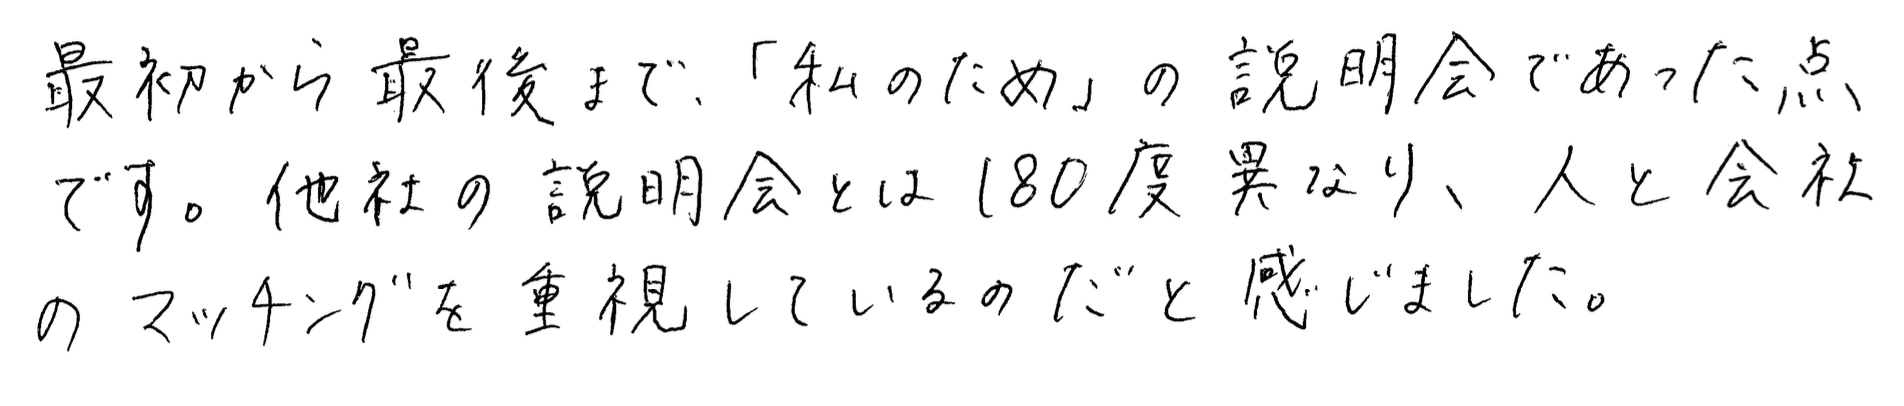 最初から最後まで、「私のため」の説明会であった点
です。他社の説明会とは180度異なり、人と会社
のマッチングを重視しているのだと感じました。